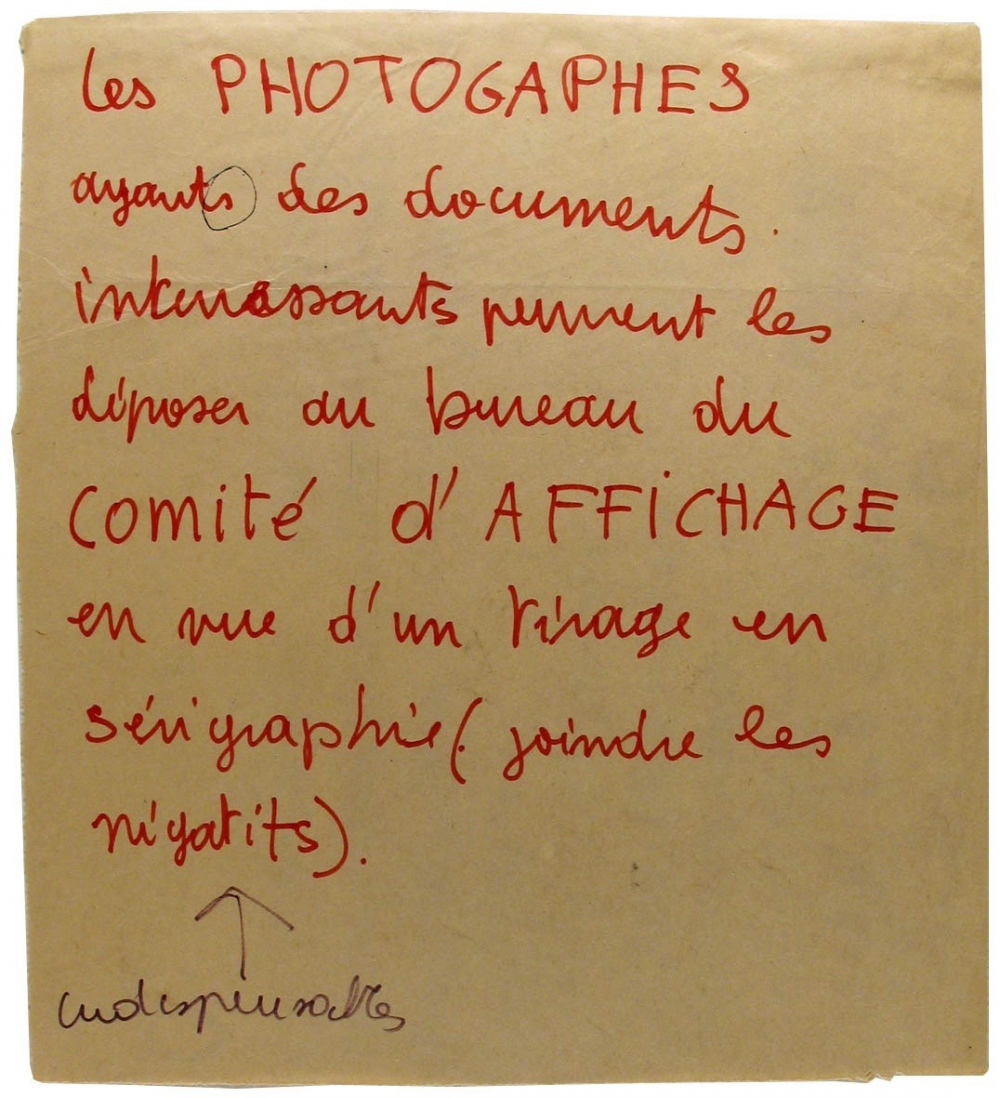 les PHOTOGAPHES
ayants des documents.
interessants peuvent les
déposer au bureau du
comité d'AFFICHAGE
en vue d'un tirage en
sérigraphie (joindre les
négatifs).
indispensables